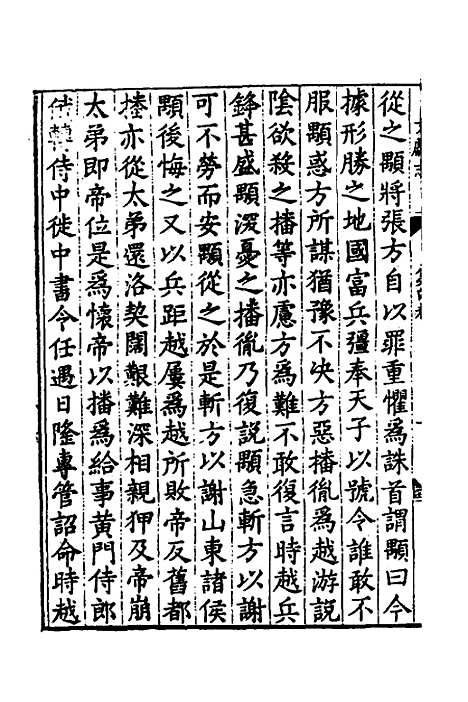 從之顒將張方自以罪重懼爲誅首謂顒曰今
據形勝之地國富兵彊奉天子以號令誰敢不
服顒惑方所謀猶豫不决方惡播胤爲越游說
陰欲殺之播等亦慮方爲難不敢復言時越兵
鋒甚盛顒深憂之播胤乃復說顒急斬方以謝
可不勞而安顒從之於是斬方以謝山東諸侯
顒後悔之又以兵距越屢爲越所敗帝反舊都
播亦從太弟還洛契闊艱難深相親狎及帝崩
太弟即帝位是爲懷帝以播爲給事黄門侍郎
侍中徙中書令任遇日隆專管詔命時越